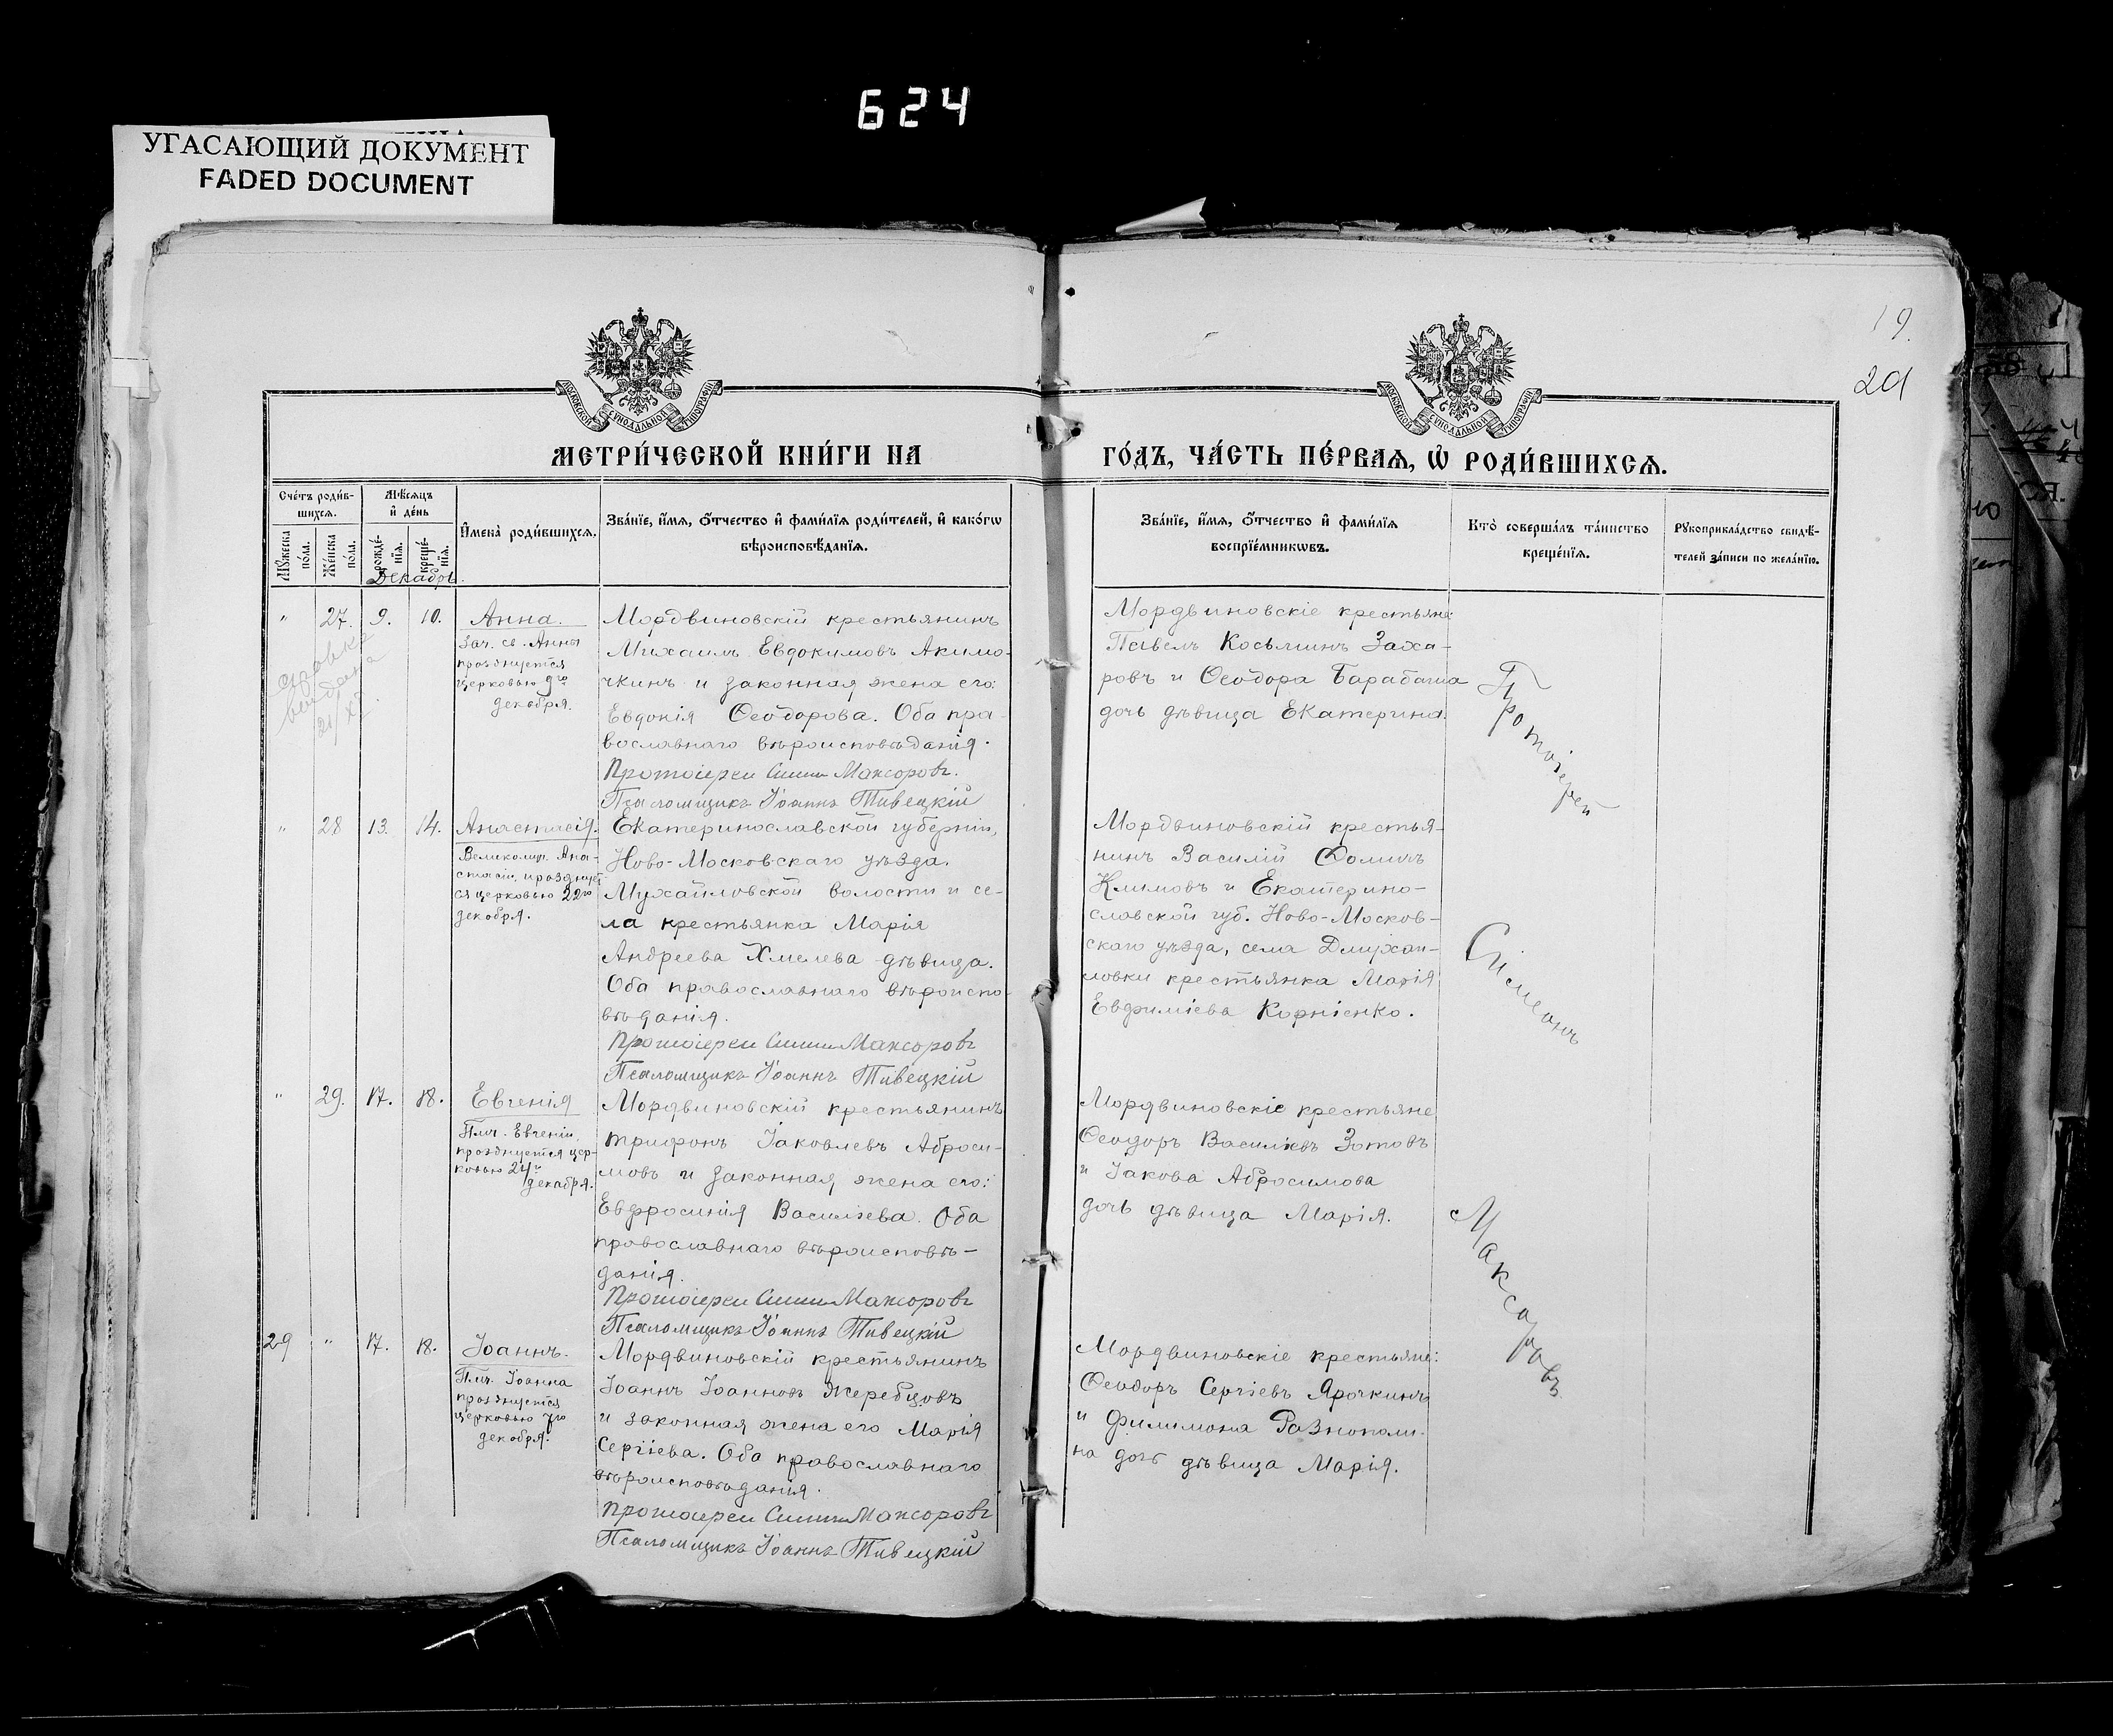 624
УГАСАЮЩИЙ ДОКУМЕНТ
FADED DOCUMENT
19.
20
МОСКОВСКОЙ СѴНОДАЛЬНОЙ ТИПОГРАФІИ
МОСКОВСКОЙ СѴНОДАЛЬНОЙ ТИПОГРАФІИ
МЕТРИ́ЧЕСКОЙ КНИ́ГИ НА
ГО́ДЪ, ЧА́СТЬ ПЕ́РВАѦ, Ѡ҆ РОДИ́ВШИХСѦ.
Сче́тъ роди́в-
шихсѧ.
Мꙋ́жеска по́ла.
Же́нска по́ла.
Мѣ́сѧцъ
и҆ де́нь
рожде́-
нїѧ.
креще́-
нїѧ.
И҆мена̀ роди́вшихсѧ.
Зва́нїе, и҆́мѧ, ѻ҆́тчество и҆ фами́лїѧ роди́телей, и҆ како́гѡ
вѣроисповѣ́данїѧ.
Зва́нїе, и҆́мѧ, ѻ҆́тчество и҆ фами́лїѧ
воспрїе́мникѡвъ.
Кто̀ соверша́лъ та́инство
креще́нїѧ.
Рꙋкоприкла́дство свидѣ́-
телей за́писи по жела́нїю.
Декабрь.
" 27. 9. 10. Анна.
Зач. св. Анны
празднуется
церковью 9го
декабря.
справка
выдана
21/XI
Мордвиновскій крестьянинъ
Михаилъ Евдокимовъ Акимо-
чкинъ и законная жена его:
Евдокія Ѳеодорова. Оба пра-
вославнаго вѣроисповѣданія.
Протоіерей Симеонъ Максоровъ.
Псаломщикъ Іоаннъ Тивецкій
Мордвиновскіе крестьяне:
Павелъ Косьминъ Заха-
ровъ и Ѳеодора Барабаша
дочь дѣвица Екатерина.
" 28 13. 14. Анастасія.
Великомуч. Ана-
стасіи, празднует-
ся церковью 22го
декабря.
Екатеринославской губерніи,
Ново-Московскаго уѣзда.
Мухайловской волости и се-
ла крестьянка Марія
Андреева Хмелева дѣвица.
Оба православнаго вѣроиспо-
вѣданія.
Протоіерей Симеонъ Максоровъ
Псаломщикъ Іоаннъ Тивецкій
Мордвиновскій крестья-
нинъ Василій Ѳоминъ
Климовъ и Екатерино-
славской губ. Ново-Москов-
скаго уѣзда, села Дмухай-
ловки крестьянка Марія
Евфиміева Корніенко.
" 29. 17. 18. Евгенія
Пмч. Евгеніи,
празднуется цер-
ковью 24го
декабря.
Мордвиновскій крестьянинъ
Трифонъ Іаковлевъ Абраси-
мовъ и законная жена его:
Евфросинія Василіева. Оба
православнаго вѣроисповѣ-
данія.
Протоіерей Симеонъ Максоровъ
Псаломщикъ Іоаннъ Тивецкій
Мордвиновскіе крестьяне
Ѳеодоръ Василіевъ Зотовъ
и Іакова Абросимова
дочь дѣвица Марія.
29 " 17. 18. Іоаннъ.
Пмч. Іоанна
празднуется
церковью 7го
декабря.
Мордвиновскій крестьянинъ
Іоаннъ Іоанновъ Жеребцовъ
и законная жена его Марія
Сергіева. Оба православнаго
вѣроисповѣданія.
Протоіерей Симеонъ Максоровъ
Псаломщикъ Іоаннъ Тивецкій
Мордвиновскіе крестьяне:
Ѳеодоръ Сергіевъ Ярочкинъ
и Филимона Разнополи-
на дочь дѣвица Марія.
Протоіерей
Симеонъ
Максоровъ